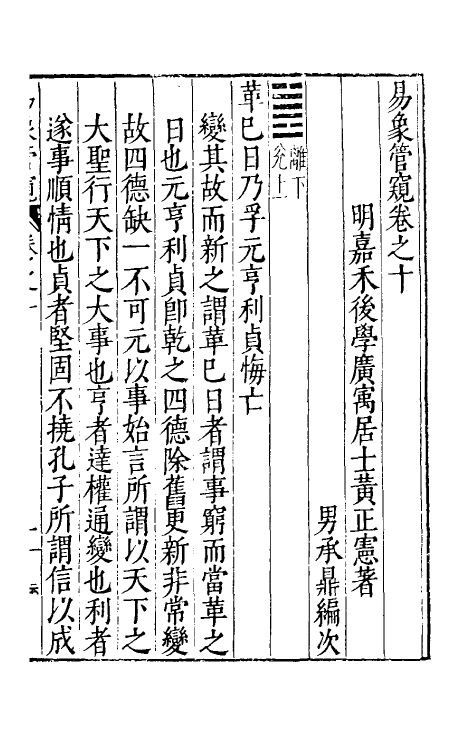 易象管窺卷之十
明嘉禾後學廣寓居士黃正憲著
男承鼎編次
離下
兊上
革巳日乃孚元亨利貞悔亡
變其故而新之謂革巳日者謂事窮而當革之
日也元亨利貞卽乾之四德除舊更新非常變
故四德缺一不可元以事始言所謂以天下之
大聖行天下之大事也亨者達權通變也利者
遂事順情也貞者堅固不撓孔子所謂信以成